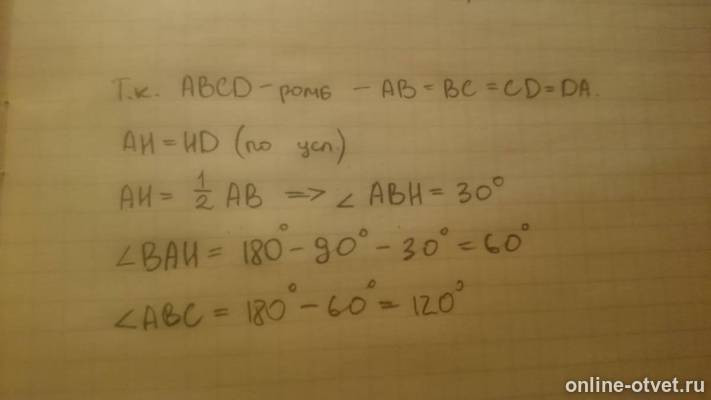 Т.к. ABCD - ромб - AB = BC = CD = DA.
AH = HD (по усл.)
AH = 1/2 AB => ∠ ABH = 30°
∠BAH = 180° - 90° - 30° = 60°
∠ABC = 180° - 60° = 120°
online-otvet.ru